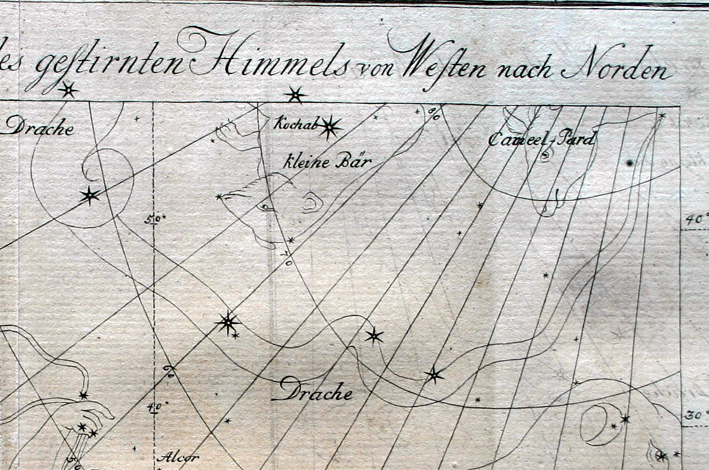 des gestirnten Himmels von Westen nach Norden
Drache
Kochab
kleine Bär
Cameel-Pard
80
50°
40°
70
60
Drache
40°
30°
Alcor
50